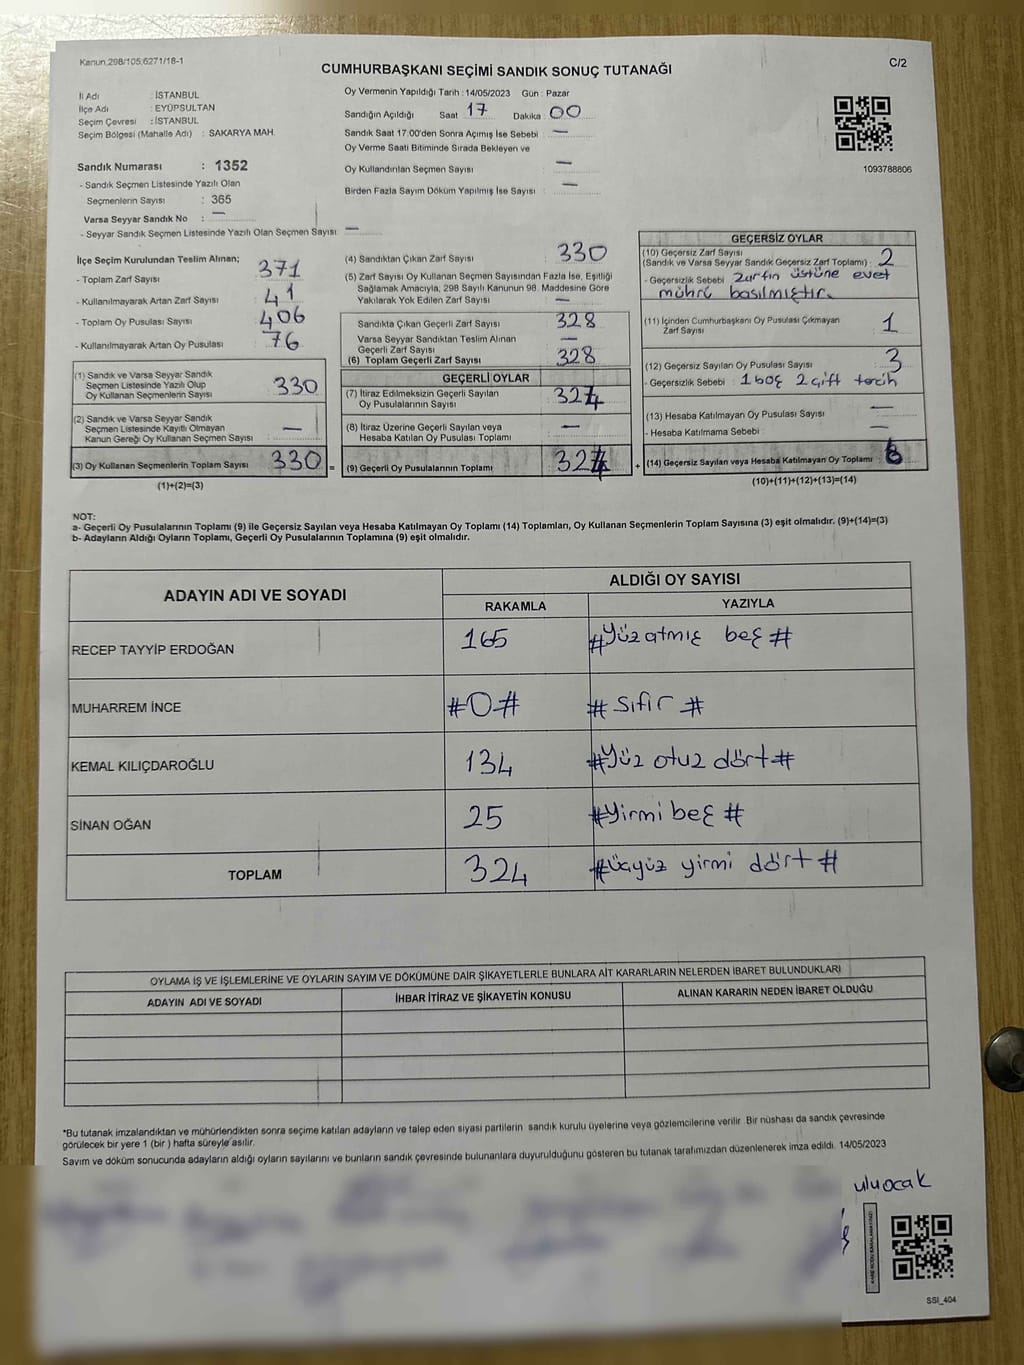 Kanun,298/105,6271/18-1
C/2
CUMHURBAŞKANI SEÇİMİ SANDIK SONUÇ TUTANAĞI
İl Adı : İSTANBUL
İlçe Adı : EYÜPSULTAN
Seçim Çevresi : İSTANBUL
Seçim Bölgesi (Mahalle Adı) : SAKARYA MAH.
Oy Vermenin Yapıldığı Tarih : 14/05/2023 Gün : Pazar
Sandığın Açıldığı Saat 17 Dakika : 00
Sandık Saat 17:00'den Sonra Açımış İse Sebebi : —
Oy Verme Saati Bitiminde Sırada Bekleyen ve
Oy Kullandırılan Seçmen Sayısı : —
Birden Fazla Sayım Döküm Yapılmış İse Sayısı : —
1093788806
Sandık Numarası : 1352
- Sandık Seçmen Listesinde Yazılı Olan
Seçmenlerin Sayısı : 365
Varsa Seyyar Sandık No : —
- Seyyar Sandık Seçmen Listesinde Yazılı Olan Seçmen Sayısı : —
İlçe Seçim Kurulundan Teslim Alınan;
- Toplam Zarf Sayısı 371
- Kullanılmayarak Artan Zarf Sayısı 41
- Toplam Oy Pusulası Sayısı 406
- Kullanılmayarak Artan Oy Pusulası 76
(1) Sandık ve Varsa Seyyar Sandık
Seçmen Listesinde Yazılı Olup
Oy Kullanan Seçmenlerin Sayısı 330
(2) Sandık ve Varsa Seyyar Sandık
Seçmen Listesinde Kayıtlı Olmayan
Kanun Gereği Oy Kullanan Seçmen Sayısı —
(3) Oy Kullanan Seçmenlerin Toplam Sayısı 330 =
(1)+(2)=(3)
(4) Sandıktan Çıkan Zarf Sayısı 330
(5) Zarf Sayısı Oy Kullanan Seçmen Sayısından Fazla İse, Eşitliği
Sağlamak Amacıyla, 298 Sayılı Kanunun 98. Maddesine Göre
Yakılarak Yok Edilen Zarf Sayısı —
Sandıkta Çıkan Geçerli Zarf Sayısı 328
Varsa Seyyar Sandıktan Teslim Alınan
Geçerli Zarf Sayısı —
(6) Toplam Geçerli Zarf Sayısı 328
GEÇERLİ OYLAR
(7) İtiraz Edilmeksizin Geçerli Sayılan
Oy Pusulalarının Sayısı 324
(8) İtiraz Üzerine Geçerli Sayılan veya
Hesaba Katılan Oy Pusulası Toplamı —
(9) Geçerli Oy Pusulalarının Toplamı 324 +
GEÇERSİZ OYLAR
(10) Geçersiz Zarf Sayısı
(Sandık ve Varsa Seyyar Sandık Geçersiz Zarf Toplamı) : 2
- Geçersizlik Sebebi Zarfın üstüne evet
mührü basılmıştır.
(11) İçinden Cumhurbaşkanı Oy Pusulası Çıkmayan
Zarf Sayısı 1
(12) Geçersiz Sayılan Oy Pusulası Sayısı 3
- Geçersizlik Sebebi : 1 boş 2 çift tercih
(13) Hesaba Katılmayan Oy Pusulası Sayısı —
- Hesaba Katılmama Sebebi : —
(14) Geçersiz Sayılan veya Hesaba Katılmayan Oy Toplamı : 6
(10)+(11)+(12)+(13)=(14)
NOT:
a- Geçerli Oy Pusulalarının Toplamı (9) ile Geçersiz Sayılan veya Hesaba Katılmayan Oy Toplamı (14) Toplamları, Oy Kullanan Seçmenlerin Toplam Sayısına (3) eşit olmalıdır. (9)+(14)=(3)
b- Adayların Aldığı Oyların Toplamı, Geçerli Oy Pusulalarının Toplamına (9) eşit olmalıdır.
ADAYIN ADI VE SOYADI
ALDIĞI OY SAYISI
RAKAMLA YAZIYLA
RECEP TAYYİP ERDOĞAN 165 #Yüz atmış beş#
MUHARREM İNCE #0# #Sıfır#
KEMAL KILIÇDAROĞLU 134 #Yüz otuz dört#
SİNAN OĞAN 25 #Yirmi beş#
TOPLAM 324 #Üçyüz yirmi dört#
OYLAMA İŞ VE İŞLEMLERİNE VE OYLARIN SAYIM VE DÖKÜMÜNE DAİR ŞİKAYETLERLE BUNLARA AİT KARARLARIN NELERDEN İBARET BULUNDUKLARI
ADAYIN ADI VE SOYADI
İHBAR İTİRAZ VE ŞİKAYETİN KONUSU
ALINAN KARARIN NEDEN İBARET OLDUĞU
*Bu tutanak imzalandıktan ve mühürlendikten sonra seçime katılan adayların ve talep eden siyasi partilerin sandık kurulu üyelerine veya gözlemcilerine verilir. Bir nüshası da sandık çevresinde
görülecek bir yere 1 (bir) hafta süreyle asılır.
Sayım ve döküm sonucunda adayların aldığı oyların sayılarını ve bunların sandık çevresinde bulunanlara duyurulduğunu gösteren bu tutanak tarafımızdan düzenlenerek imza edildi. 14/05/2023
uluocak
SSI_404